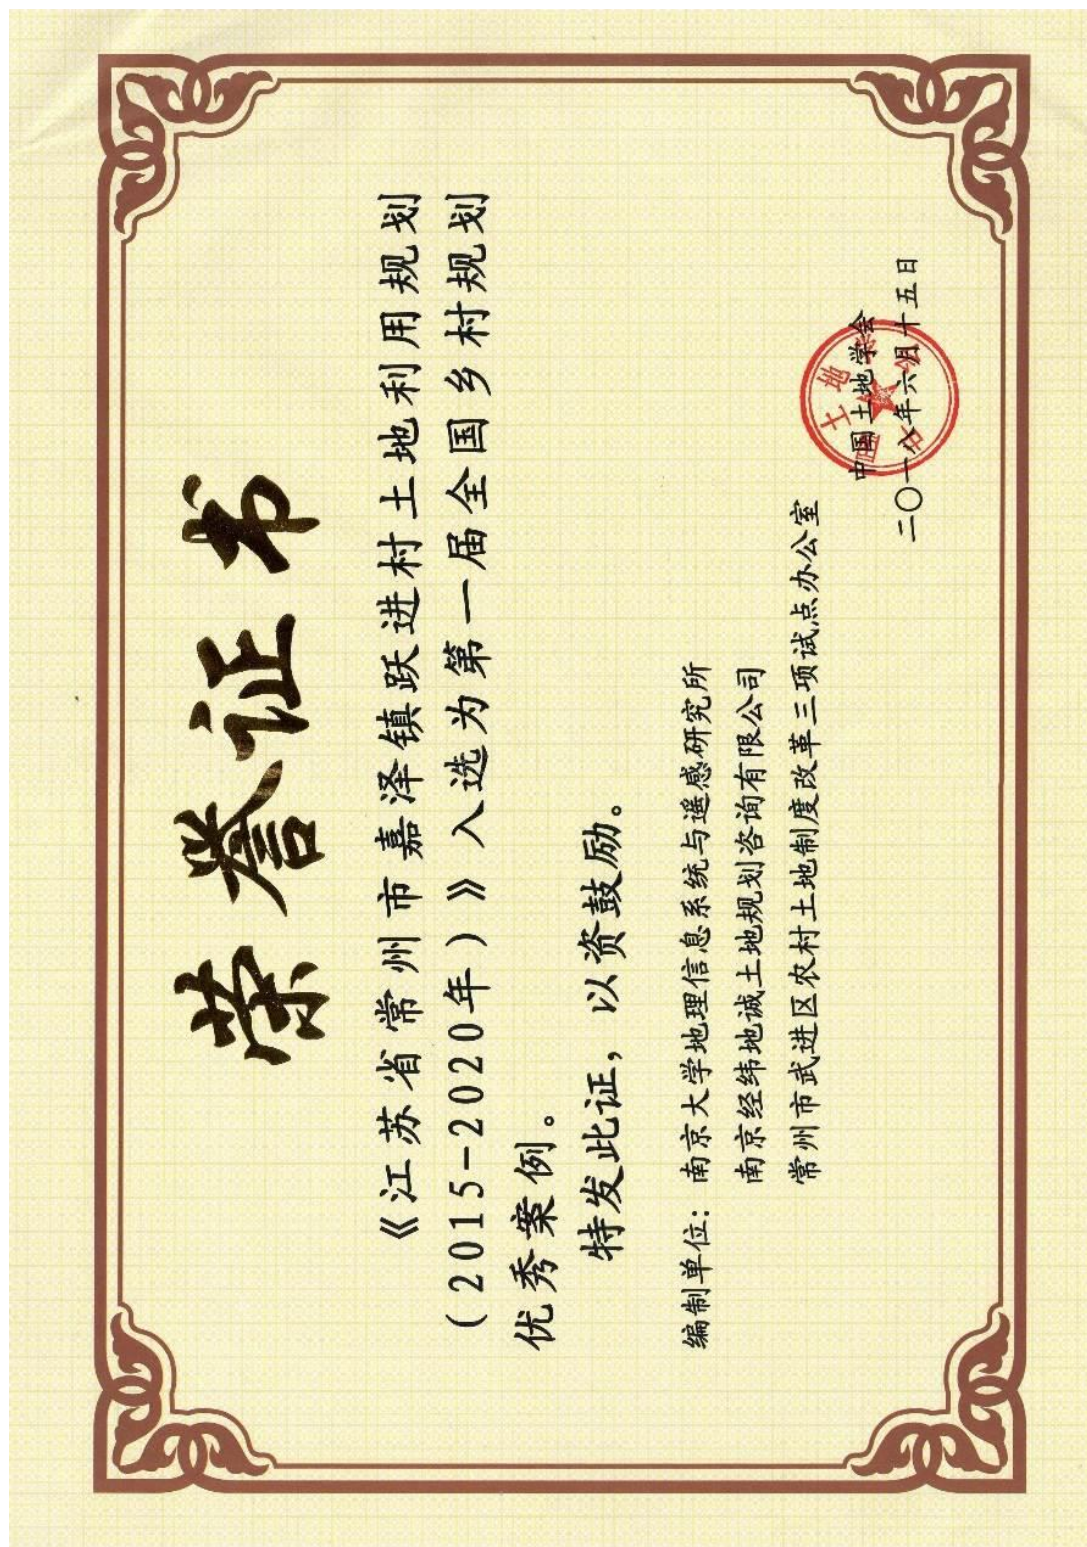 荣誉证书
《江苏省常州市嘉泽镇跃进村土地利用规划
(2015-2020年)》入选为第一届全国乡村规划
优秀案例。
特发此证，以资鼓励。
编制单位：南京大学地理信息系统与遥感研究所
南京经纬地诚土地规划咨询有限公司
常州市武进区农村土地制度改革三项试点办公室
中国土地学会
二〇一八年六月十五日